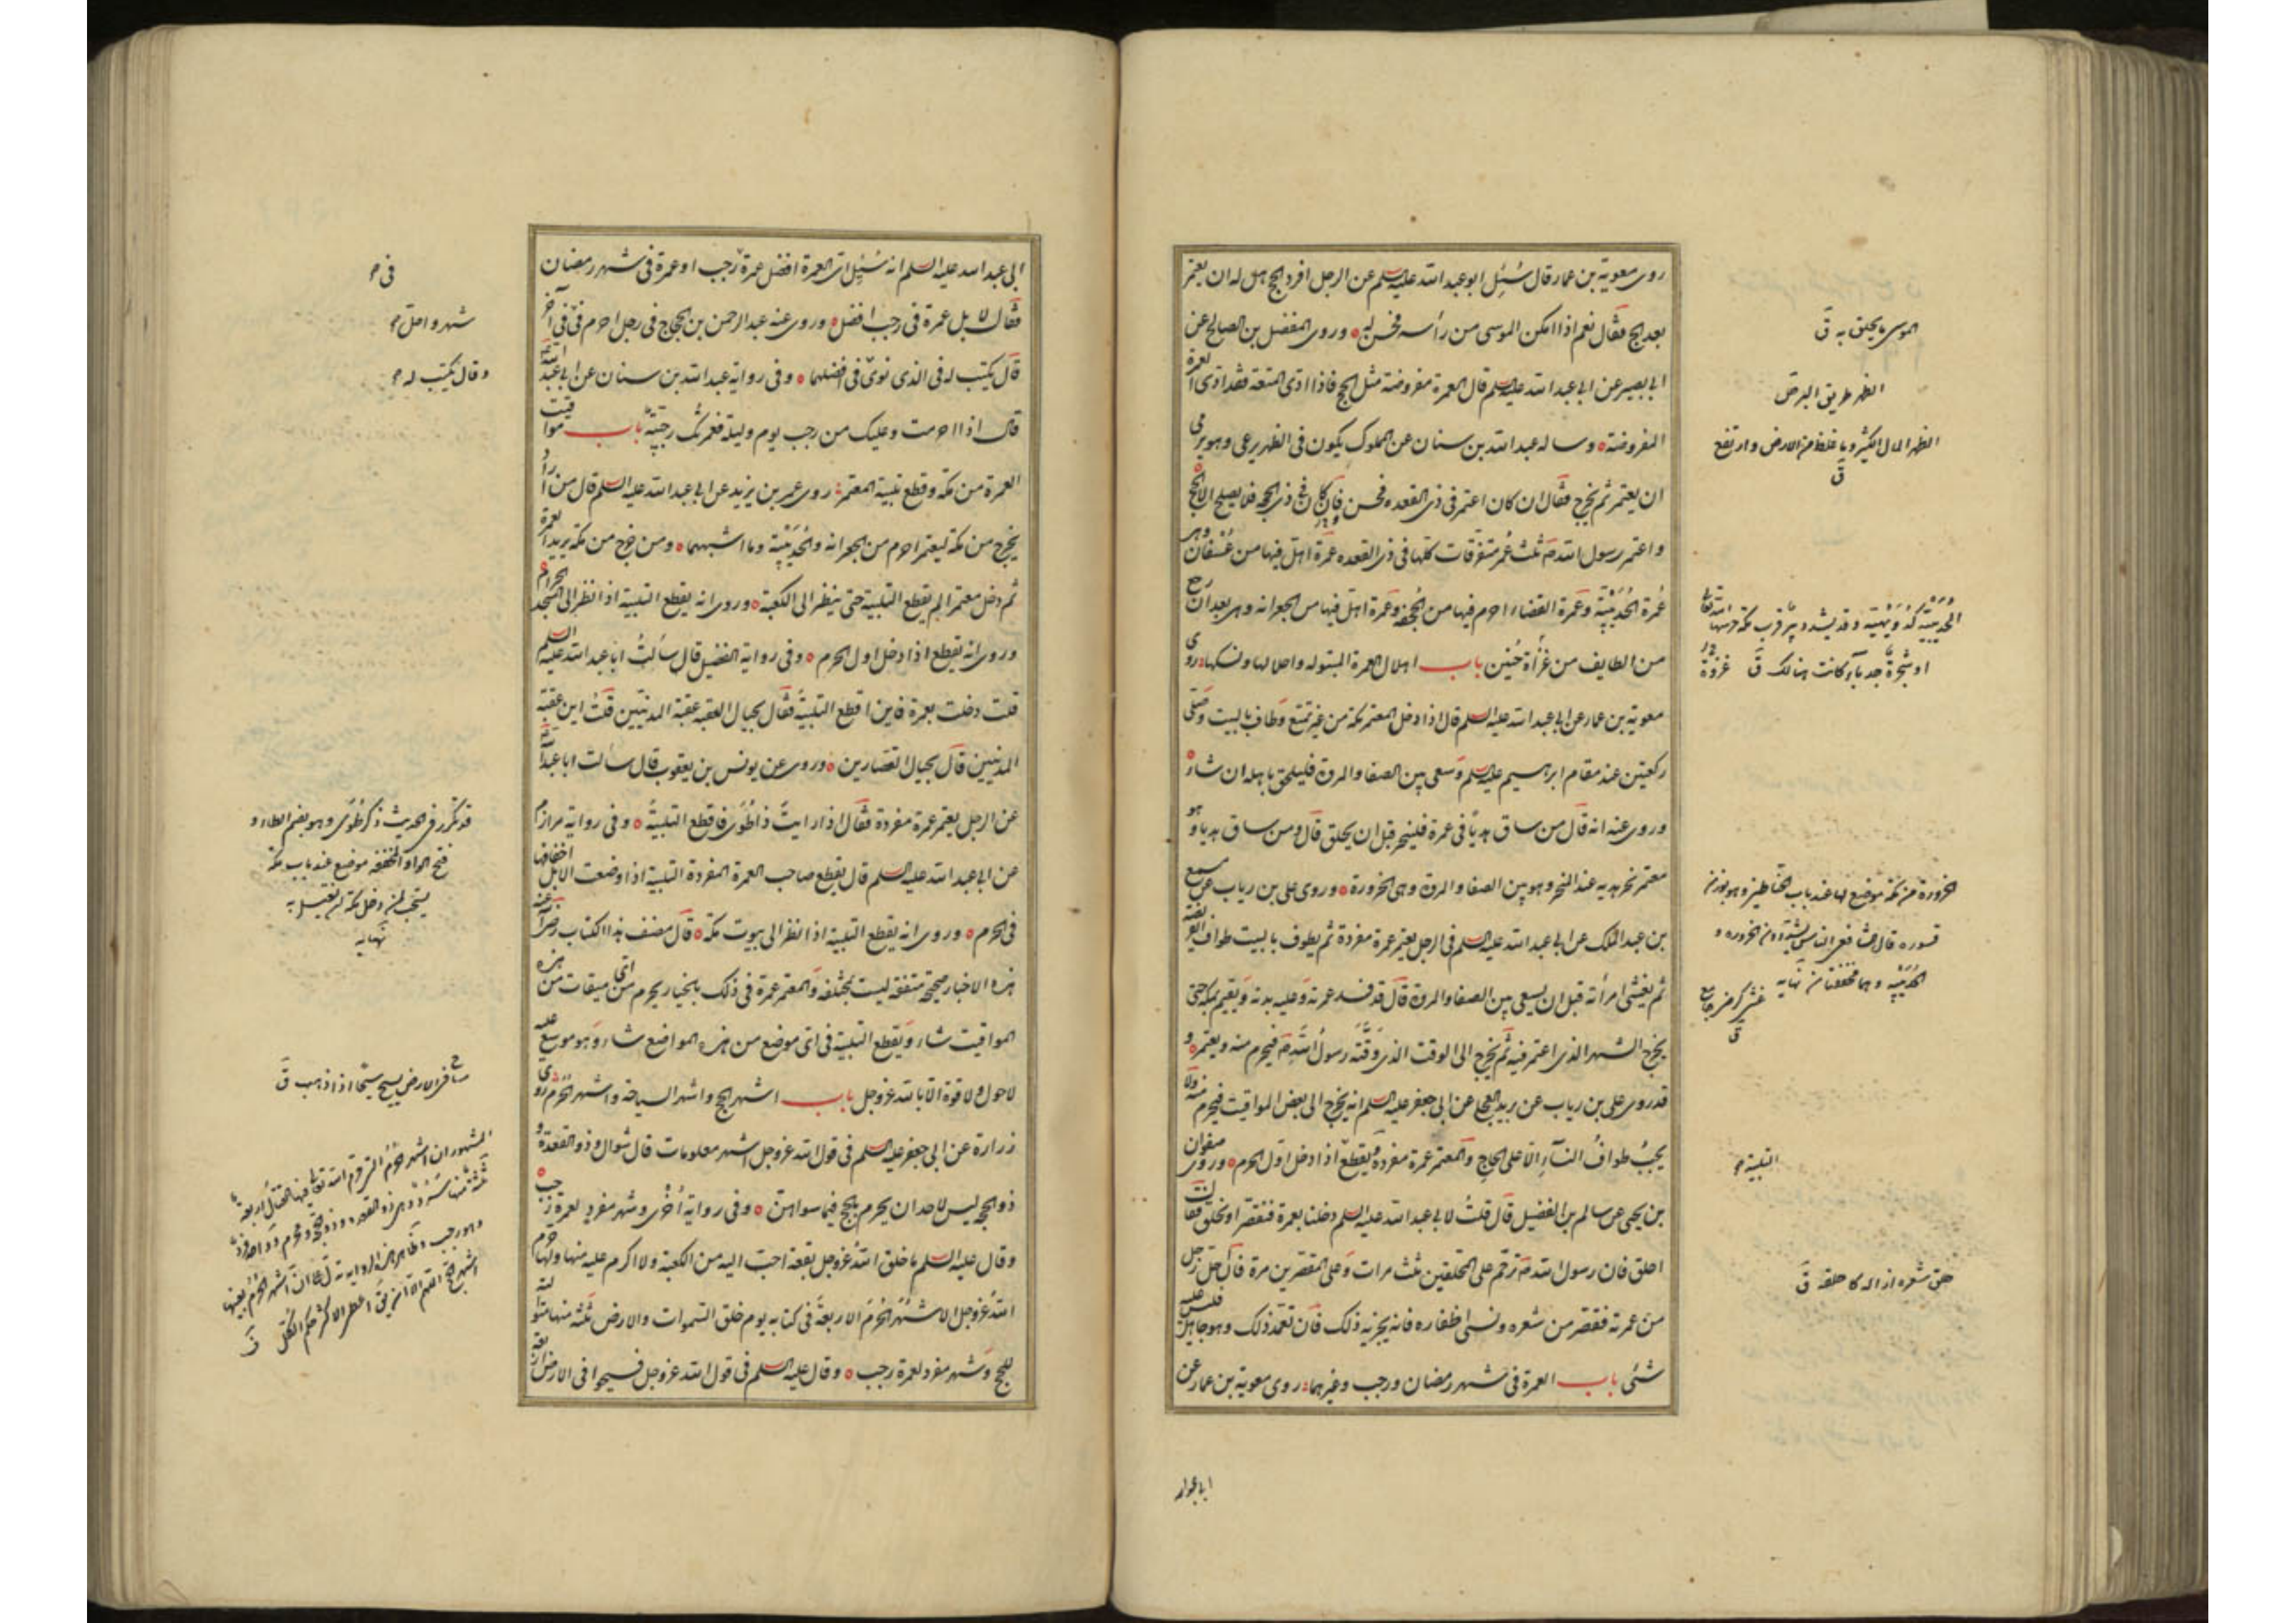 روى معوية بن عمار قال سُئِل ابو عبد الله عليه السلم عن الرجل افرد الحج هل له ان يعتمر
بعد الحج فقال نعم اذا امكن الموسى من رأسه فحسن له وروى المفضل بن الصالح عن
ابى بصير عن ابى عبد الله عليه السلم قال العمرة مفروضة مثل الحج فاذا ادى المتعة فقد ادى العمرة
المفروضة وساله عبد الله بن سنان عن المملوك يكون فى الظهر يرعى وهو يرضى
ان يعتمر ثم يخرج فقال ان كان اعتمر فى ذى القعده فحسن وان كان فى ذى الحجه فلا يصلح الا الحج
واعتمر رسول الله ص ثلث عُمَر متفرقات كلها فى ذى القعده عمرة اهل فيها من عُسفان وهى
عُمرة الحُدَيْبية وعمرة القضاء احرم فيها من الجُحفه وعمرة اهل فيها من الجعرانه وهى بعد ان رجع
من الطايف من غزاة حُنين باب اهلال العمرة المبتوله واحلالها ونسكها روى
معوية بن عمار عن ابى عبد الله عليه السلم قال اذا دخل المعتمر مكة من غير تمتع وطاف بالبيت وصلى
ركعتين عند مقام ابرهيم عليه السلم وسعى بين الصفا والمروة فليلحق باهله ان شاء
وروى عنه انه قال من ساق هديا فى عمرة فلينحر قبل ان يحلق قال ومن ساق هديا وهو
معتمر نحر هديه عند المنحر وهو بين الصفا والمروة وهى الحزورة وروى على بن رياب عن مسمع
بن عبد الملك عن ابى عبد الله عليه السلم فى الرجل يعتمر عمرة مفردة ثم يطوف بالبيت طواف الفريضة
ثم يغشى امرأته قبل ان يسعى بين الصفا والمروة قال قد فسد عمرته وعليه بدنة ويقيم بمكة حتى
يخرج الشهر الذى اعتمر فيه ثم يخرج الى الوقت الذى وقته رسول الله ص فيحرم منه ويعتمر و
قد روى على بن رياب عن بريد العجلى عن ابى جعفر عليه السلم انه يخرج الى بعض المواقيت فيحرم منه ولا
يجبُ طوافُ النساءِ الا على الحاج والمعتمر عمرة مفردة ويقطع اذا دخل اول الحرم وروى صفوان
بن يحيى عن سالم بن الفضيل قال قلتُ لابى عبد الله عليه السلم دخلنا بعمرة فنقصر او نحلق فقال
احلق فان رسول الله ص ترحّم على المحلقين ثلث مرات وعلى المقصرين مرة فان حل رجل
من عمرته فقصر من شعره ونسى اظفاره فانه يجزيه ذلك فان تعمد ذلك وهو جاهل فليس عليه
شئى باب العمرة فى شهر رمضان ورجب وغيرهما روى معوية بن عمار عن
الموسى ما يحلق به ق
الظهر طريق البر ص
الظهر المال الكثير وما غلظ من الارض وارتفع
ق
الحُدَيْبية كدُوَيْهية وقد يشدد بير قرب مكة حرسها الله تعالى
او شجرة حدباء كانت هنالك ق غزوة
الحزورة من مكة موضع بها عند باب الحناطين وهو بوزن
قسورة قال الشافعى الناس يشددون الحزورة و
الحديبية وهما مخففتان نهايه
ق
التلبية
حلق شعره ازاله كاحلقه ق
ابى عبد الله عليه السلم انه سُئِل اى العمرة افضل عمرة رجب او عمرة فى شهر رمضان
فقال لا بل عمرة فى رجب افضل وروى عنه عبد الرحمن بن الحجاج فى رجل احرم فى فى آخر
قال يكتب له فى الذى نوى فى افضلهما وفى رواية عبد الله بن سنان عن ابى عبد الله
قال اذا احرمت وعليك من رجب يوم وليلة فعمرتك رجبية باب مواقيت
العمرة من مكة وقطع تلبية المعتمر روى عمر بن يزيد عن ابى عبد الله عليه السلم قال من اراد
يخرج من مكة ليعتمر احرم من الجعرانه والحُدَيْبية وما اشبههما ومن خرج من مكة يريد العمرة
ثم دخل معتمرا لم يقطع التلبية حتى ينظر الى الكعبة وروى انه يقطع التلبية اذا نظر الى المسجد الحرام
وروى انه يقطع اذا دخل اول الحرم وفى رواية الفضيل قال سألتُ ابا عبد الله عليه السلم
قلت دخلت بعمرة فاين اقطع التلبية فقال بحيال العقبه عقبة المدنيين قلت اين عقبة
المدنيين قال بحيال القصارين وروى عن يونس بن يعقوب قال سالت ابا عبد الله
عن الرجل يعتمر عمرة مفردة فقال اذا رايتَ ذا طُوًى فاقطع التلبيةَ وفى رواية مرازم
عن ابى عبد الله عليه السلم قال يقطع صاحب العمرة المفردة التلبية اذا وضعت الابل اخفافها
فى الحرم وروى انه يقطع التلبية اذا نظر الى بيوت مكة قال مصنف هذا الكتاب رضى الله عنه
هذه الاخبار صحيحة متفقة ليست بمختلفه والمعتمر عمرة فى ذلك بالخيار يحرم من اى ميقات من هذه
المواقيت شاء ويقطع التلبية فى اى موضع من هذه المواضع شاء وهو موسع عليه
لا حول ولا قوة الا بالله عز وجل باب اشهر الحج واشهر السياحة واشهر الحُرُم روى
زرارة عن ابى جعفر عليه السلم فى قول الله عز وجل اشهر معلومات قال شوال وذو القعدة و
ذو الحجه ليس لاحد ان يحرم بالحج فيما سواهن وفى رواية اُخرى وشهر مفرد لعمرة رجب
وقال عليه السلم ما خلق الله عز وجل بقعة احبّ اليه من الكعبة ولا اكرم عليه منها ولها حرم
الله عز وجل الاشهُرَ الحُرُمَ الاربعةَ فى كتابه يوم خلق السموات والارض ثلثة منها متوالية
للحج وشهر مفرد لعمرة رجب وقال عليه السلم فى قول الله عز وجل فسيحوا فى الارض اربعة
فى
شهر واحل
وقال يكتب له
قد تكرر فى الحديث ذكر طُوًى وهو بضم الطاء و
فتح الواو المخففه موضع عند باب مكة
يستحب لمن دخل مكة ان يغتسل به
نهايه
ساح فى الارض يسيح سيحا اذا ذهب ق